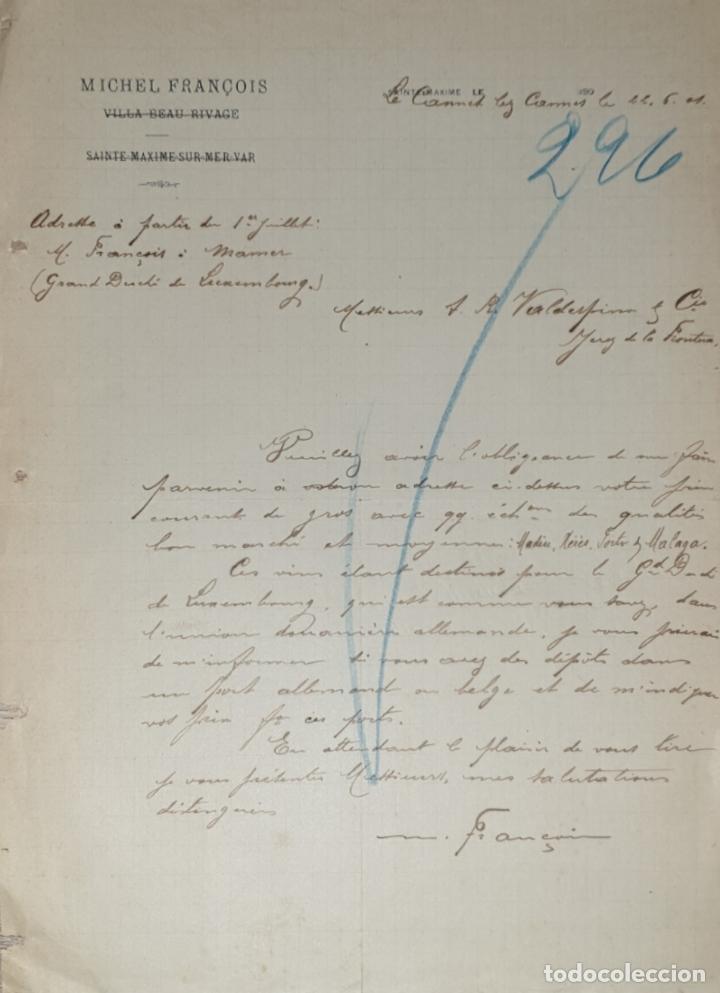 MICHEL FRANÇOIS
VILLA BEAU RIVAGE
SAINTE MAXIME SUR MER VAR
SAINTE MAXIME LE 190
Le Cannet lez Cannes le 22.6.01.
296
Adresse à partir du 1er Juillet:
M. François à Mamer
(Grand Duché de Luxembourg.)
Messieurs A. R. Valdespino & Cie
Jerez de la Frontera.
Veuillez avoir l'obligeance de me faire
parvenir à adresse ci-dessus votre prix
courant de gros avec qq. échons des qualités
bon marché et moyennes: Madère, Xérès, Porto & Malaga.
Ces vins étant destinés pour le Gd. Duché
de Luxembourg, qui est comme vous savez, dans
l'union douanière allemande, je vous prierai
de m'informer si vous avez des dépôts dans
un port allemand ou belge et de m'indiquer
vos prix fo ces ports.
En attendant le plaisir de vous lire
je vous présente, Messieurs, mes salutations
distinguées
M. François
todocoleccion.net